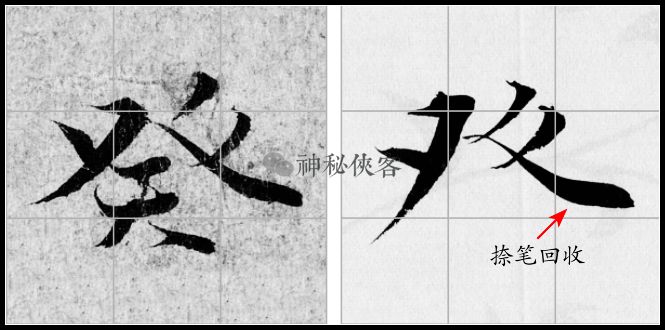 癸
癶
神秘俠客
捺笔回收